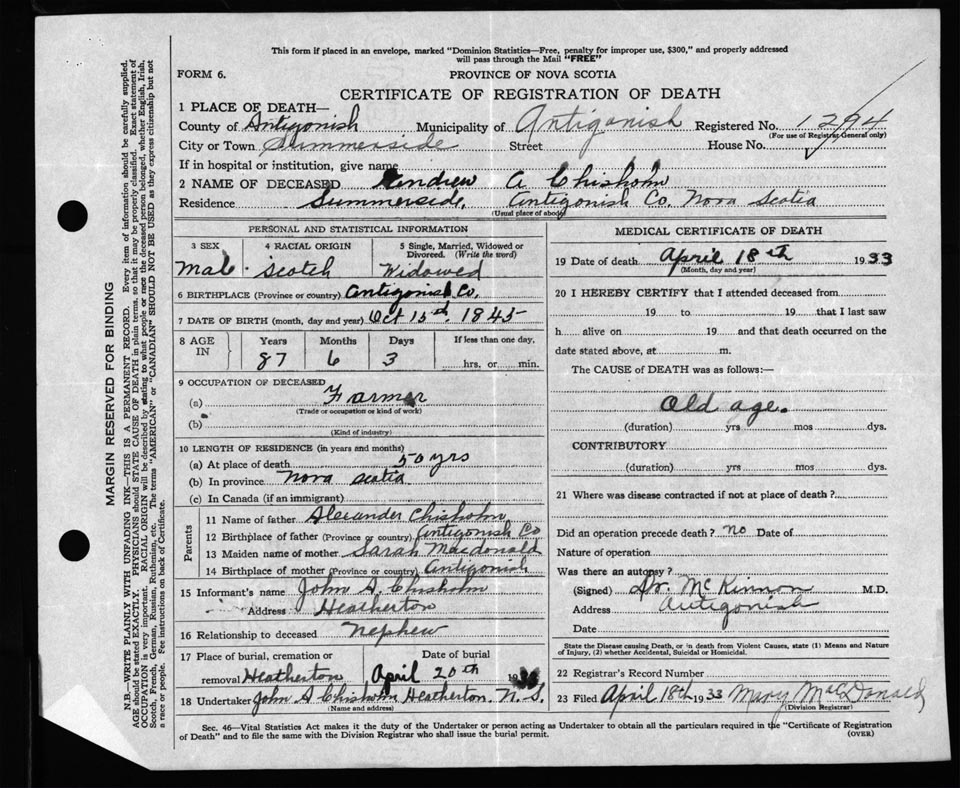 This form if placed in an envelope, marked "Dominion Statistics—Free, penalty for improper use, $300," and properly addressed
will pass through the Mail "FREE"
FORM 6.
PROVINCE OF NOVA SCOTIA
CERTIFICATE OF REGISTRATION OF DEATH
1 PLACE OF DEATH—
County of Antigonish Municipality of Antigonish Registered No. 1294
(For use of Registrar General only)
City or Town Summerside Street House No.
If in hospital or institution, give name
2 NAME OF DECEASED Andrew A Chisholm
Residence Summerside, Antigonish Co. Nova Scotia
(Usual place of abode)
PERSONAL AND STATISTICAL INFORMATION
3 SEX 4 RACIAL ORIGIN 5 Single, Married, Widowed or
Divorced. (Write the word)
Male Scotch Widowed
6 BIRTHPLACE (Province or country) Antigonish Co.
7 DATE OF BIRTH (month, day and year) Oct 15th. 1845
8 AGE IN Years Months Days If less than one day,
87 6 3 hrs, or min.
9 OCCUPATION OF DECEASED
(a) Farmer
(Trade or occupation or kind of work)
(b)
(Kind of industry)
10 LENGTH OF RESIDENCE (in years and months)
(a) At place of death 50 yrs
(b) In province Nova Scotia
(c) In Canada (if an immigrant)
Parents
11 Name of father Alexander Chisholm
12 Birthplace of father (Province or country) Antigonish Co
13 Maiden name of mother Sarah Macdonald
14 Birthplace of mother (Province or country) Antigonish
15 Informant's name John A. Chisholm
Address Heatherton
16 Relationship to deceased Nephew
17 Place of burial, cremation or Date of burial
removal Heatherton April 20th 19
18 Undertaker John A Chisholm Heatherton, N.S.
(Name and address)
MEDICAL CERTIFICATE OF DEATH
19 Date of death April 18th 1933
(Month, day and year)
20 I HEREBY CERTIFY that I attended deceased from
19 to 19 that I last saw
h alive on 19 and that death occurred on the
date stated above, at m.
The CAUSE of DEATH was as follows:—
Old age.
(duration) yrs mos dys.
CONTRIBUTORY
(duration) yrs mos dys.
21 Where was disease contracted if not at place of death?
Did an operation precede death? no Date of
Nature of operation
Was there an autopsy?
(Signed) Dr. McKinnon M.D.
Address Antigonish
Date
State the Disease causing Death, or in death from Violent Causes, state (1) Means and Nature
of Injury, (2) whether Accidental, Suicidal or Homicidal.
22 Registrar's Record Number
23 Filed April 18th 1933 Mary MacDonald
(Division Registrar)
Sec. 46—Vital Statistics Act makes it the duty of the Undertaker or person acting as Undertaker to obtain all the particulars required in the "Certificate of Registration
of Death" and to file the same with the Division Registrar who shall issue the burial permit.
(OVER)
MARGIN RESERVED FOR BINDING
N.B.—WRITE PLAINLY WITH UNFADING INK—THIS IS A PERMANENT RECORD. Every item of information should be carefully supplied.
AGE should be stated EXACTLY. PHYSICIANS should STATE CAUSE OF DEATH in plain terms, so that it may be properly classified. Exact statement of
OCCUPATION is very important. RACIAL ORIGIN will be described by stating to what people or race the deceased person belonged, whether English, Irish,
Scotch, French, German, Russian, Ruthenian, etc. The terms "AMERICAN" or "CANADIAN" SHOULD NOT BE USED as they express citizenship but not
a race or people. See instructions on back of Certificate.